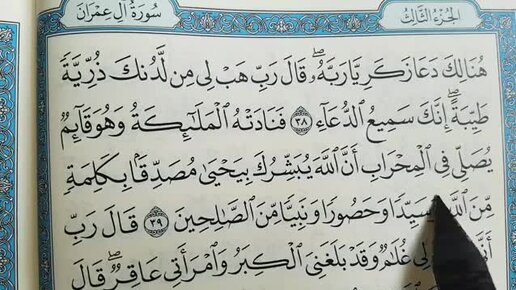 الجزء الثالث
سورة آل عمران
هُنَالِكَ دَعَا زَكَرِيَّا رَبَّهُۥۖ قَالَ رَبِّ هَبۡ لِي مِن لَّدُنكَ ذُرِّيَّةٗ
طَيِّبَةًۖ إِنَّكَ سَمِيعُ ٱلدُّعَآءِ ٣٨ فَنَادَتۡهُ ٱلۡمَلَٰٓئِكَةُ وَهُوَ قَآئِمٞ
يُصَلِّي فِي ٱلۡمِحۡرَابِ أَنَّ ٱللَّهَ يُبَشِّرُكَ بِيَحۡيَىٰ مُصَدِّقَۢا بِكَلِمَةٖ
مِّنَ ٱللَّهِ وَسَيِّدٗا وَحَصُورٗا وَنَبِيّٗا مِّنَ ٱلصَّٰلِحِينَ ٣٩ قَالَ رَبِّ
لِي غُلَٰمٞ وَقَدۡ بَلَغَنِيَ ٱلۡكِبَرُ وَٱمۡرَأَتِي عَاقِرٞۖ قَالَ